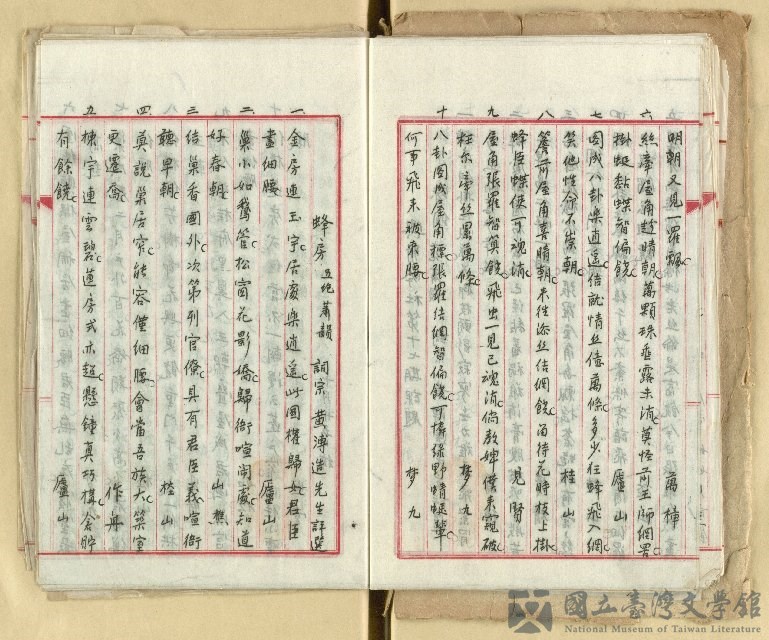 明朝又見一羅飄　萬樟
六 絲牽屋角趁晴朝萬顆珠垂露未消莫怪前王師網罟
掛蛇黏蝶智偏饒　廬山
七 圖成八卦樂逍遙結就情絲億萬條多少狂蜂飛入網
笑他性命不崇朝　桂山
八 簷前屋角喜晴朝來往添絲結網饒留待花時枝上掛
蜂臣蝶使可魂消　見賢
九 屋角張羅智莫饒飛出一見已魂消倘教婢僕來窺破
枉尔牽絲累萬條　梦九
十 八卦圖成屋角標張羅結網智偏饒可憐綠野蜻蜓輩
何事飛來被束腰　梦九
蜂房 五絕蕭韻 詞宗 黃溥造先生評選
一 金房連玉宇居處樂逍遙此國權歸女君臣
盡細腰　廬山
二 巢小如鵝管松窗花影嬌歸衙喧鬧處知道
好春朝　山樵
三 結巢香國外次第列官僚具有君臣義喧衙
聽早朝　桂山
四 莫說巢居窄能容僅細腰會當吾族大築室
更遷喬　作舟
五 棟宇連雲碧蓮房式亦超懸鐘真巧構倉貯
有餘饒　廬山
國立臺灣文學館
National Museum of Taiwan Literature